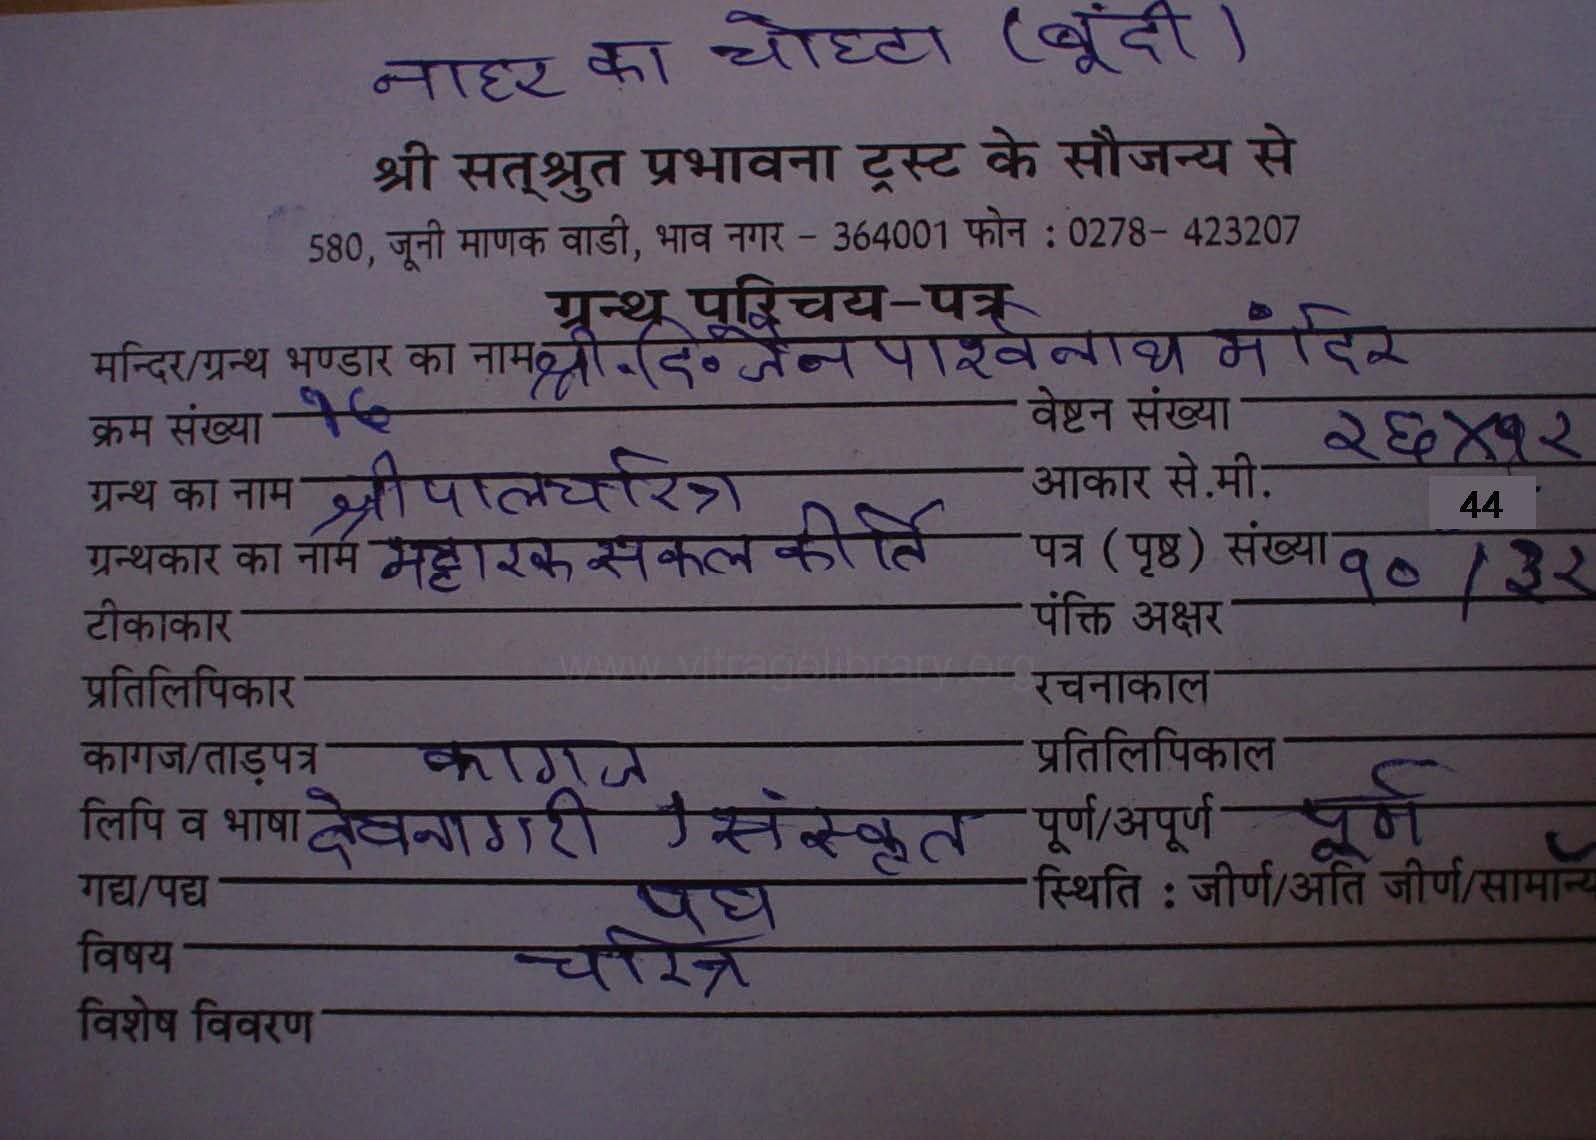 नाहर का चोहटा (बूंदी)
श्री सत्श्रुत प्रभावना ट्रस्ट के सौजन्य से
580, जूनी माणक वाडी, भाव नगर – 364001 फोन : 0278– 423207
ग्रन्थ परिचय–पत्र
मन्दिर/ग्रन्थ भण्डार का नाम श्री. दि॰ जैन पार्श्वनाथ मंदिर
क्रम संख्या वेष्टन संख्या
२६X१२
ग्रन्थ का नाम श्रीपालचरित्र आकार से.मी.
44
ग्रन्थकार का नाम भट्टारक सकलकीर्ति पत्र (पृष्ठ) संख्या
१० / ३२
टीकाकार पंक्ति अक्षर
www.vitragelibrary.org
प्रतिलिपिकार रचनाकाल
कागज/ताड़पत्र कागज प्रतिलिपिकाल
लिपि व भाषा देवनागरी , संस्कृत पूर्ण/अपूर्ण पूर्ण
गद्य/पद्य पद्य स्थिति : जीर्ण/अति जीर्ण/सामान्य
विषय चरित्र
विशेष विवरण